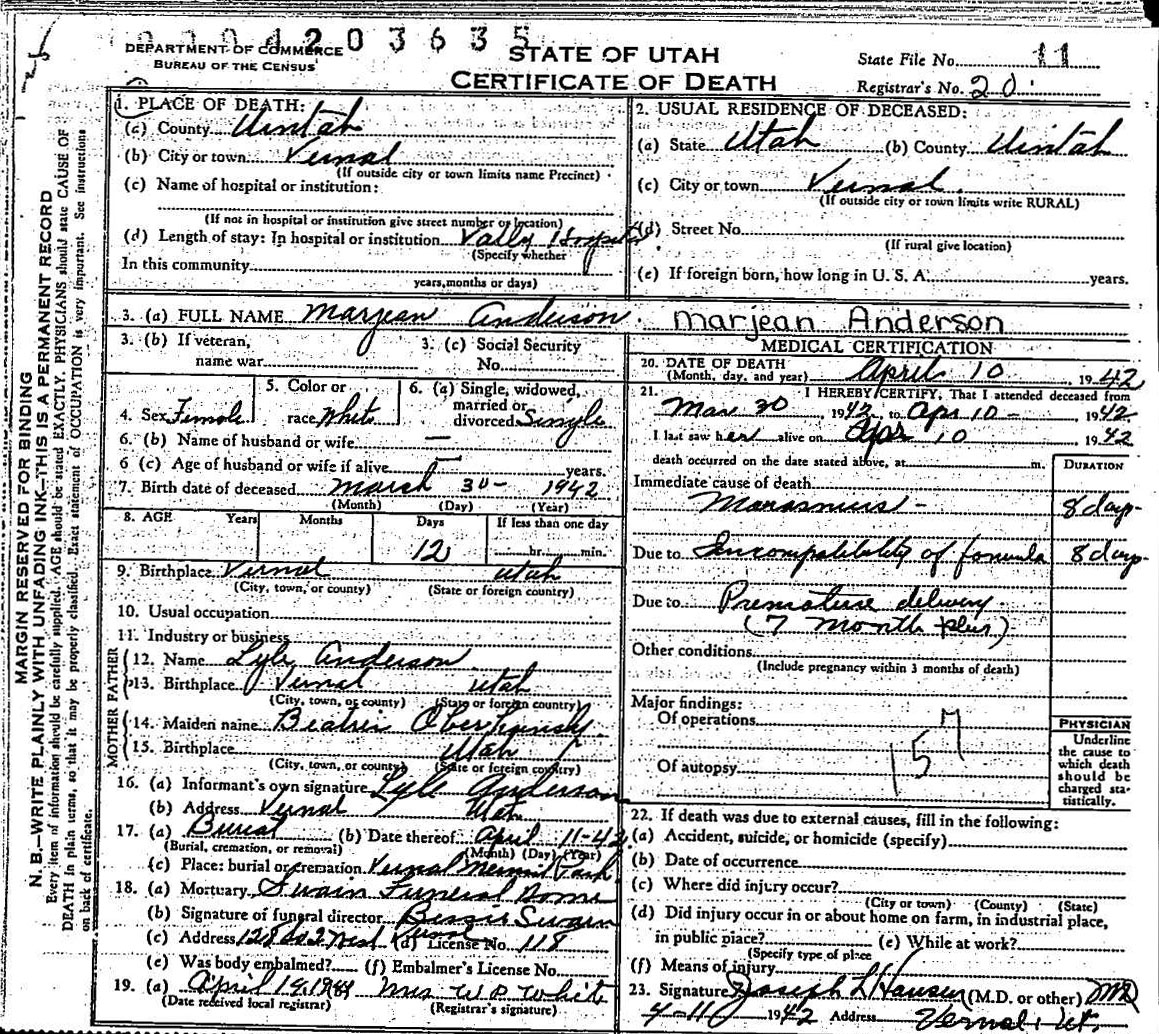 0004203635
DEPARTMENT OF COMMERCE
BUREAU OF THE CENSUS
STATE OF UTAH
CERTIFICATE OF DEATH
State File No. 11
Registrar's No. 20
MARGIN RESERVED FOR BINDING
N. B.—WRITE PLAINLY WITH UNFADING INK—THIS IS A PERMANENT RECORD
Every item of information should be carefully supplied. AGE should be stated EXACTLY. PHYSICIANS should state CAUSE OF
DEATH in plain terms, so that it may be properly classified. Exact statement of OCCUPATION is very important. See instructions
on back of certificate.
1. PLACE OF DEATH:
(a) County Uintah
(b) City or town Vernal
(If outside city or town limits name Precinct)
(c) Name of hospital or institution:
(If not in hospital or institution give street number or location)
(d) Length of stay: In hospital or institution Vally Hospital
(Specify whether
In this community
years, months or days)
2. USUAL RESIDENCE OF DECEASED:
(a) State Utah (b) County Uintah
(c) City or town Vernal
(If outside city or town limits write RURAL)
(d) Street No.
(If rural give location)
(e) If foreign born, how long in U. S. A. years.
3. (a) FULL NAME Marjean Anderson. Marjean Anderson
3. (b) If veteran,
name war
3. (c) Social Security
No.
4. Sex Female
5. Color or
race White
6. (a) Single, widowed,
married or
divorced Single
6. (b) Name of husband or wife —
6 (c) Age of husband or wife if alive — years.
7. Birth date of deceased March 30- 1942
(Month) (Day) (Year)
8. AGE Years Months Days If less than one day
12 hr. min.
9. Birthplace Vernal Utah
(City, town, or county) (State or foreign country)
10. Usual occupation
11. Industry or business
FATHER
12. Name Lyle Anderson
13. Birthplace Vernal Utah
(City, town, or county) (State or foreign country)
MOTHER
14. Maiden name Beatrice
15. Birthplace Utah
(City, town, or county) (State or foreign country)
16. (a) Informant's own signature Lyle Anderson
(b) Address Vernal Utah
17. (a) Burial (b) Date thereof April 11-42
(Burial, cremation, or removal) (Month) (Day) (Year)
(c) Place: burial or cremation Vernal Memorial Park
18. (a) Mortuary Swain Funeral Home
(b) Signature of funeral director Bessie Swain
(c) Address West Vernal (d) License No. 118
(e) Was body embalmed? (f) Embalmer's License No.
19. (a) April Mrs W P White
(Date received local registrar) (Registrar's signature)
MEDICAL CERTIFICATION
20. DATE OF DEATH
(Month, day, and year) April 10, 1942
21. I HEREBY CERTIFY, That I attended deceased from
Mar 30, 1942, to Apr 10 - 1942
I last saw her alive on Apr 10 1942
death occurred on the date stated above, at m.
DURATION
Immediate cause of death
Marasmus - 8 days
Due to Incompatibility of formula 8 days
Due to Premature delivery
(7 month plus)
Other conditions
(Include pregnancy within 3 months of death)
Major findings:
Of operations
Of autopsy
157
PHYSICIAN
Underline
the cause to
which death
should be
charged sta-
tistically.
22. If death was due to external causes, fill in the following:
(a) Accident, suicide, or homicide (specify)
(b) Date of occurrence
(c) Where did injury occur?
(City or town) (County) (State)
(d) Did injury occur in or about home on farm, in industrial place,
in public place? (e) While at work?
(Specify type of place
(f) Means of injury
23. Signature Joseph L Hansen (M.D. or other) MD
4-11 1942 Address Vernal, Ut